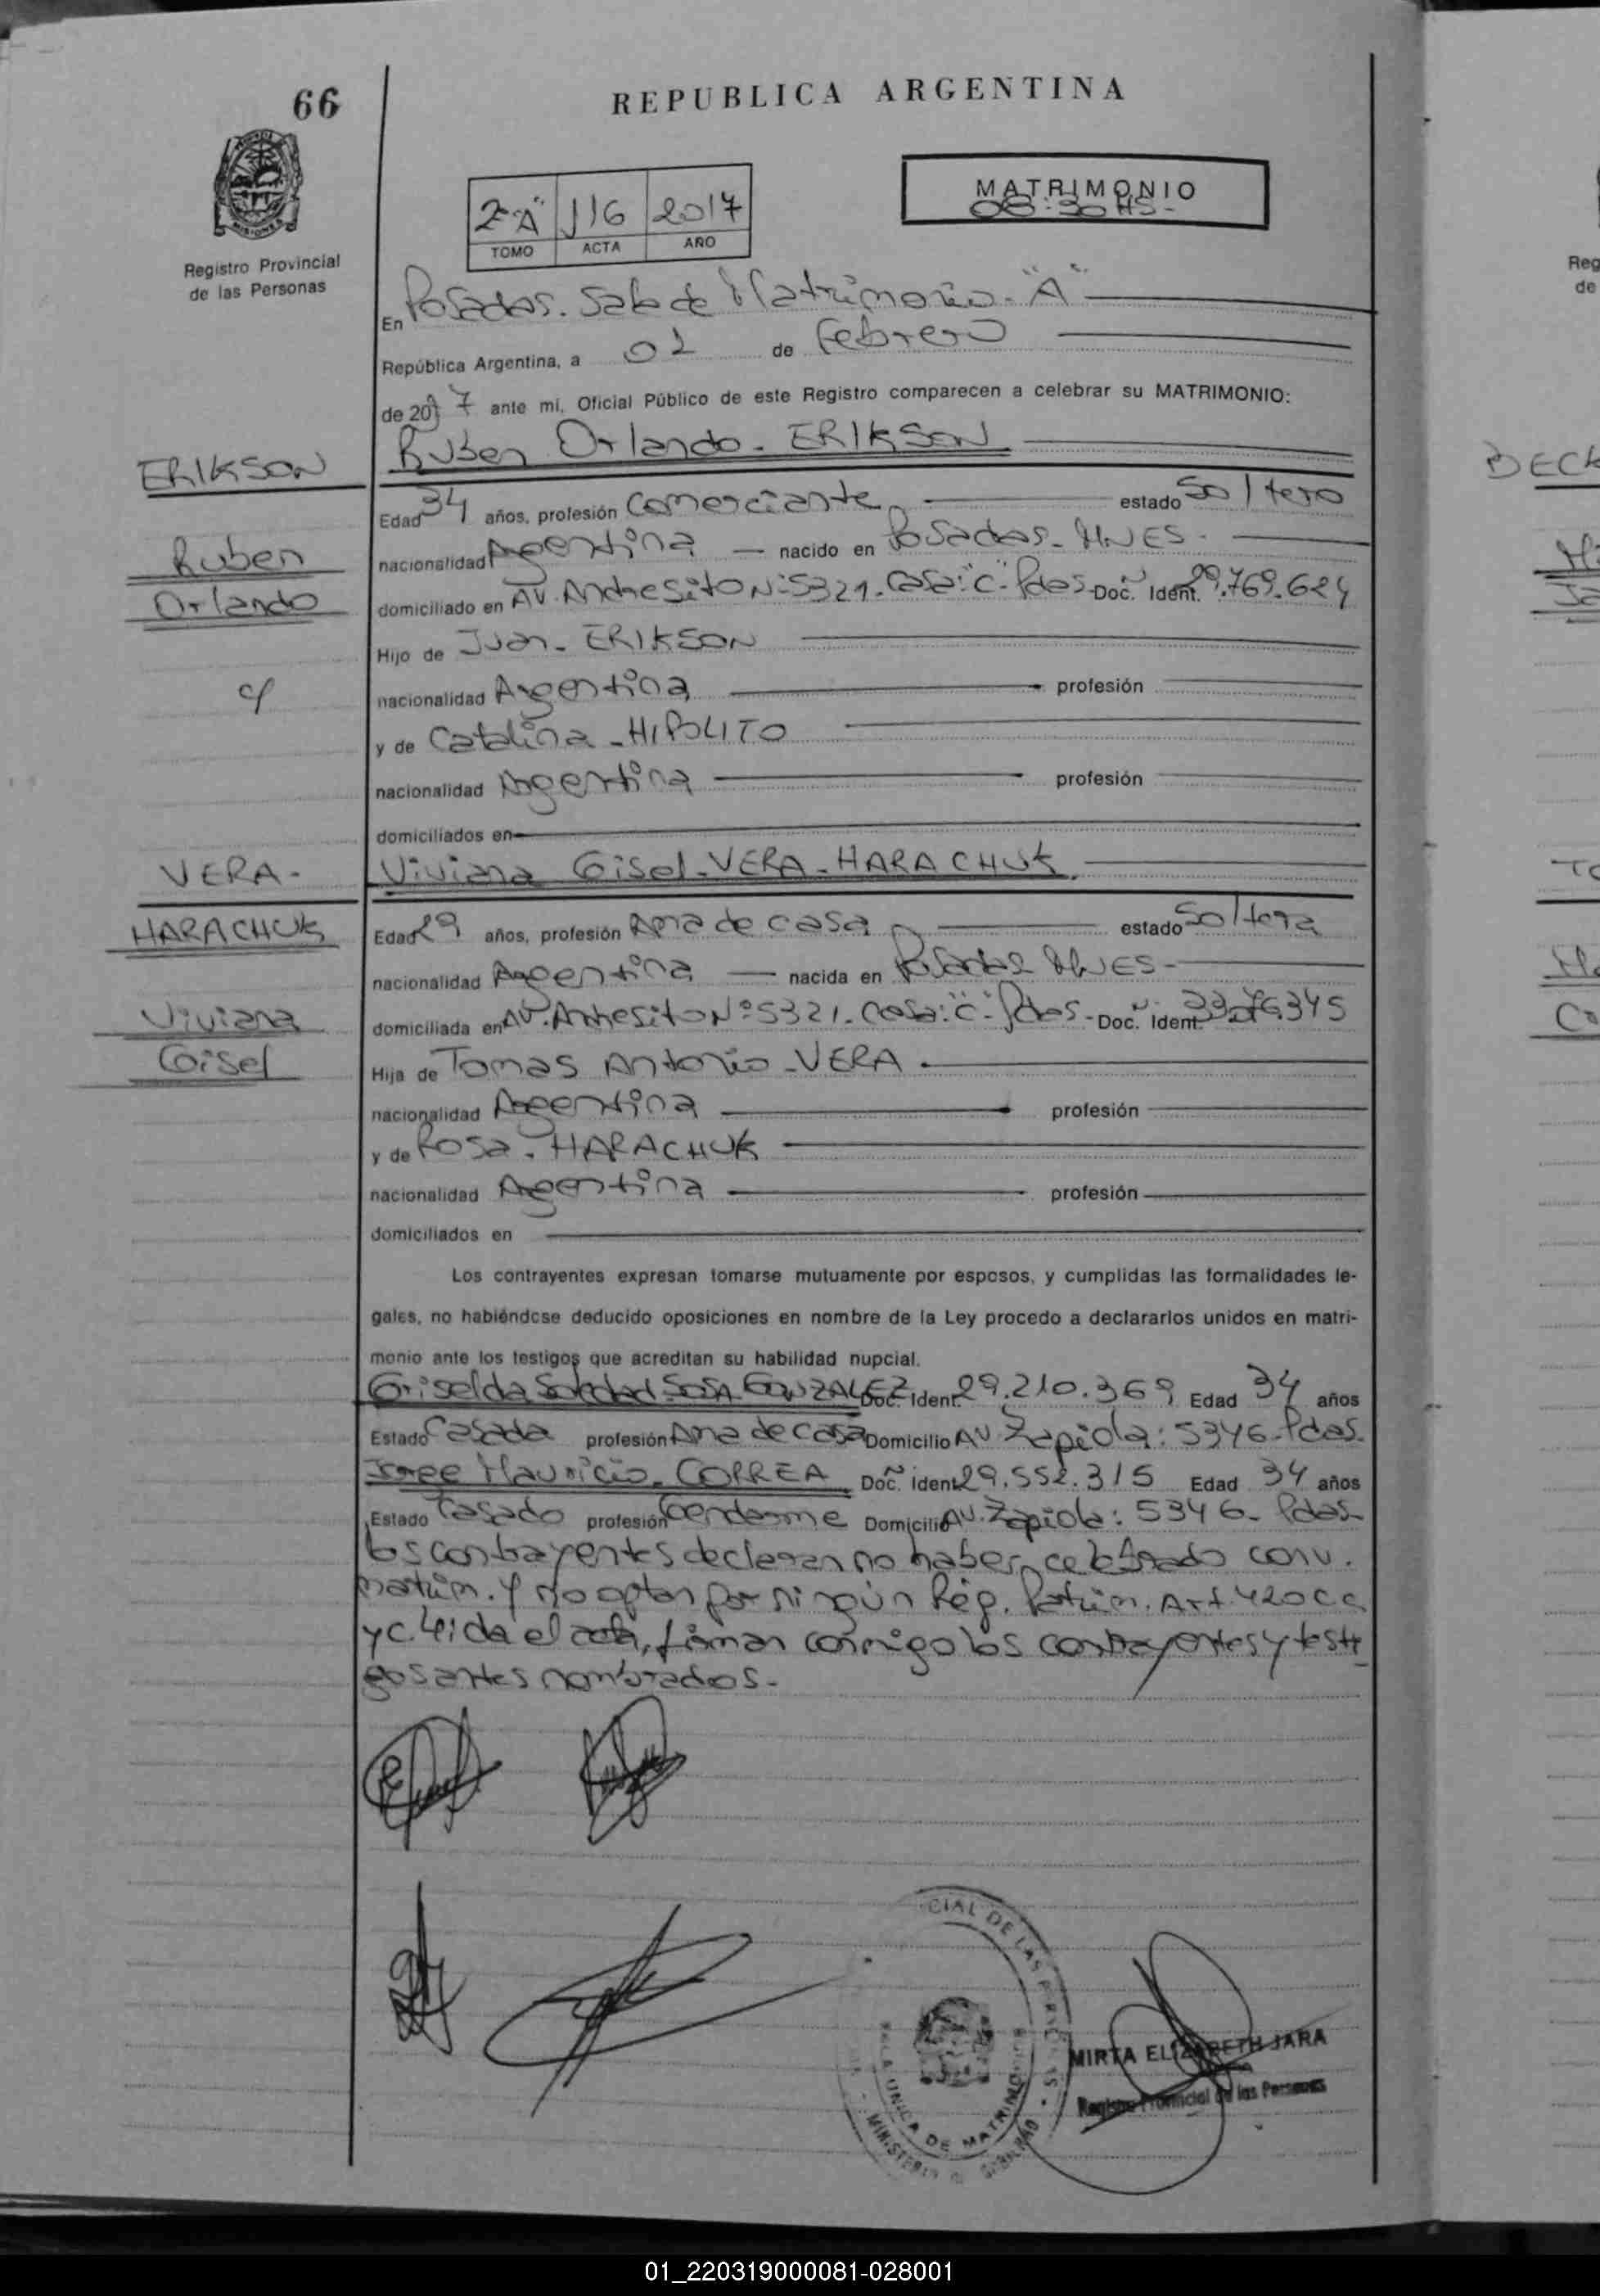 66
REPUBLICA ARGENTINA
2º "A" 116 2017
TOMO ACTA AÑO
MATRIMONIO
08:30 HS-
MISIONES
Registro Provincial
de las Personas
En Posadas. Sala de Matrimonio. "A"
República Argentina, a 02 de Febrero
de 2017 ante mi, Oficial Público de este Registro comparecen a celebrar su MATRIMONIO:
ERIKSON
Ruben Orlando - ERIKSON
Edad 34 años, profesión Comerciante estado Soltero
Ruben
nacionalidad Argentina nacido en Posadas- MNES-
Orlando
domiciliado en AV. Andresito Nº 5321. Casa: "C"- Pdas- Doc. Ident. 29.769.624
Hijo de Juan - ERIKSON
c/
nacionalidad Argentina profesión
y de Catalina - HIPOLITO
nacionalidad Argentina profesión
domiciliados en
VERA-
Viviana Gisel - VERA - HARACHUK
HARACHUK
Edad 29 años, profesión Ama de casa estado Soltera
nacionalidad Argentina nacida en Posadas MNES-
Viviana
domiciliada en AV. Andresito Nº 5321. Casa: "C"- Pdas- Doc. Ident.
Gisel
Hija de Tomas Antonio - VERA
nacionalidad Argentina profesión
y de Rosa - HARACHUK
nacionalidad Argentina profesión
domiciliados en
Los contrayentes expresan tomarse mutuamente por esposos, y cumplidas las formalidades le-
gales, no habiéndose deducido oposiciones en nombre de la Ley procedo a declararlos unidos en matri-
monio ante los testigos que acreditan su habilidad nupcial.
Griselda Soledad SOSA GONZALEZ Doc. Ident. 29.210.369 Edad 34 años
Estado Casada profesión Ama de casa Domicilio AV. Zapiola: 5346- Pdas.
Jorge Mauricio - CORREA Doc. Ident. 29.552.315 Edad 34 años
Estado Casado profesión Gendarme Domicilio AV. Zapiola: 5346- Pdas-
los contrayentes declaran no haber celebrado conv.
matrim. y no optan por ningún Rég. Patrim. Art. 420 CC
y C. leida el acta, firman conmigo los contrayentes y testi
gos antes nombrados.-
CIAL DE LAS PERSONAS
SALA UNICA DE MATRIMONIOS
MINISTERIO GOBIERNO
MIRTA ELIZABETH JARA
Registro Provincial de las Personas
BECK
Reg
de
01_220319000081-028001